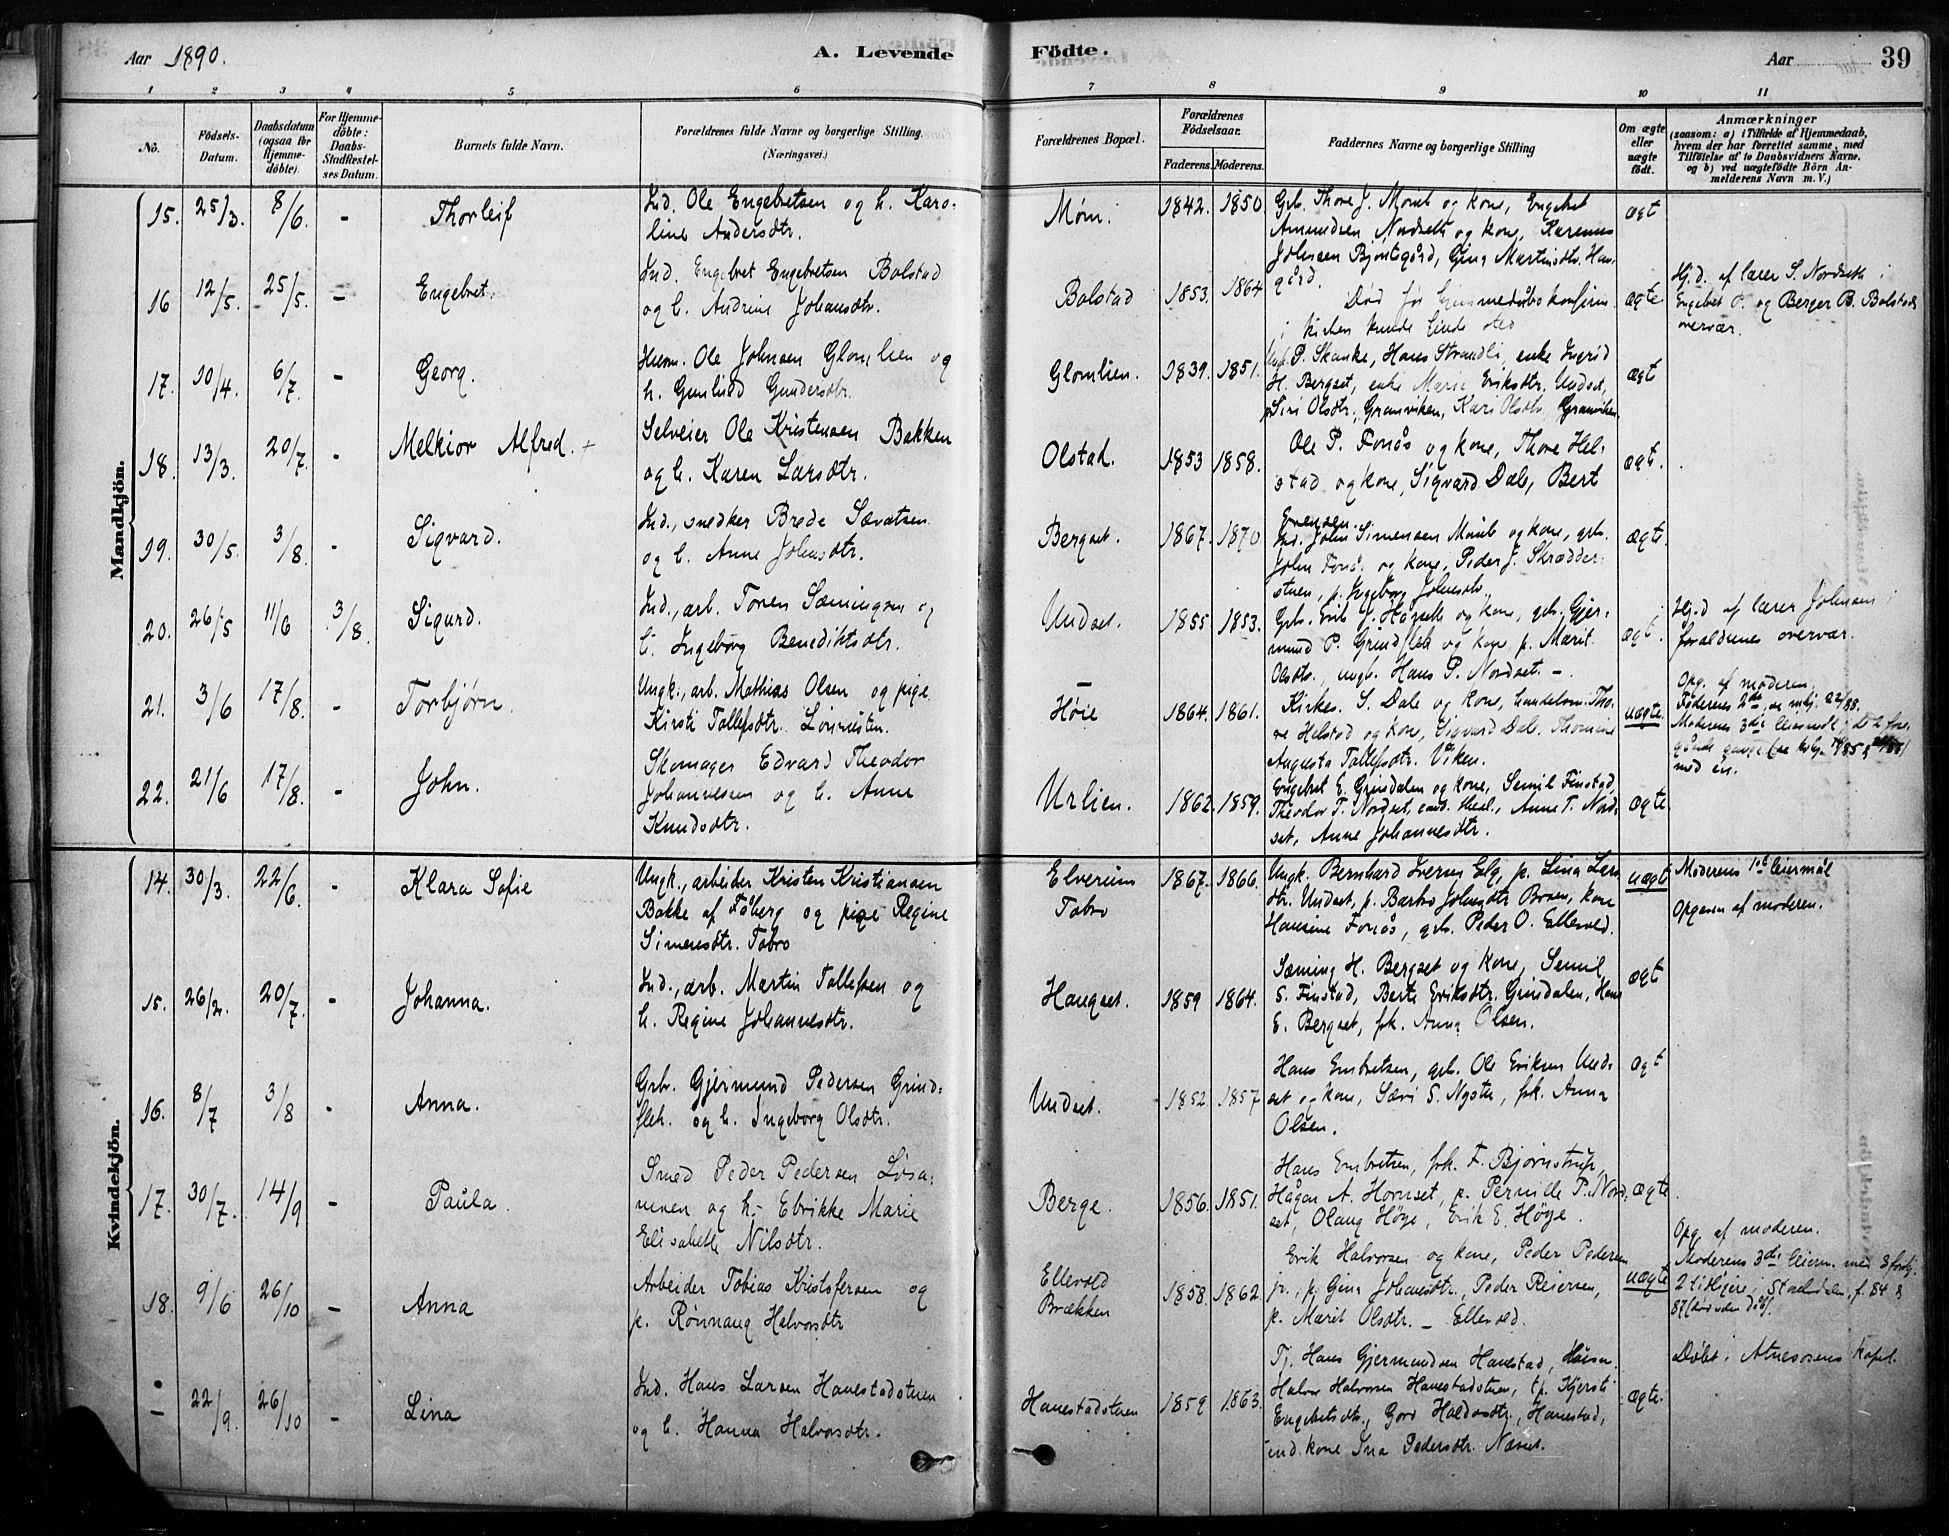 Aar 1890.
A. Levende
Födte.
Aar
39
1 2 3 4 5 6 7 8 9 10 11
No.
Födsels-Datum.
Daabsdatum (ogsaa for Hjemme-döbte)
For Hjemme-döbte: Daabs-Stadfæstel-ses Datum.
Barnets fulde Navn.
Forældrenes fulde Navne og borgerlige Stilling. (Næringsvei.)
Forældrenes Bopæl.
Forældrenes Födselsaar.
Faderens. Moderens.
Faddernes Navne og borgerlige Stilling
Om ægte eller uægte födt.
Anmærkninger
(saasom: a) i Tilfælde af Hjemmedaab,
hvem der har forrettet samme, med
Tilföielse af to Daabsvidners Navne,
og b) ved uægtefödte Börn An-
melderens Navn m. V.)
Mandkjön.
15. 25/3. 8/6. - Thorleif
Ind. Ole Engebretsen og h. Karo-
line Andersdtr.
1842. 1850.
Grb. Thore J. Morit og kone, Engebret
Amundsen Nordseth og kone, Karenus
Johnsen Bjontegård, Gina Martinsdtr. Hau-
gård.
ægt
16 12/5. 25/5. - Engebret.
Ind. Engebret Engebretsen Bolstad
og h. Andrine Johansdtr.
Bolstad 1853. 1864
Död før hjemmedåbs konfirm.
i kirken kunde finde sted
ægte
Hj.d. af lærer S. Nordseth i
Engebret P. og Berger B. Bolstads
overvær.
17. 10/4. 6/7. - Georg.
Husm. Ole Johnsen Glomlien og
h. Gunhild Gundersdtr.
Glomlien. 1839. 1851.
P. Skanke, Hans Strandli, enke Ingrid
H. Bergset, enke Marie Eriksdtr. Undset,
Siri Olsdtr. Granviken, Kari Olsdtr. Granviken.
ægt
18. 13/3. 20/7. - Melkior Alfred. +
Selveier Ole Kristensen Bakken
og h. Karen Larsdtr.
Olstad. 1853 1858.
Ole P. Fonås og kone, Thore Hel-
stad og kone, Sigvard Dale, Bert
Evensen.
ægt.
19. 30/5. 3/8. - Sigvard.
Ind., snedker Brede Sævatsen
og h. Anne Johnsdtr.
Bergset. 1867. 1870
Ind. John Simensen Morit og kone, grb.
John Fonås og kone, Peder J. Skrædder-
stuen, p. Ingeborg Johnsdtr.
ægte.
20. 26/5 11/6 3/8. Sigurd.
Ind., arb. Toren Sæmingsen og
h. Ingeborg Benediktsdtr.
Undset. 1855 1853.
Grb. Erik J. Høgseth og kone, grb. Gjer-
mund P. Grindflek og kone, p. Marit
Olsdtr., ungk. Hans P. Nordset. -
ægt.
Hj.d af lærer Johnsen i
forældrenes overvær.
21. 3/6 17/8. - Torbjørn.
Ungk., arb. Mathias Olsen og pige
Kirsti Tollefsdtr.
Höie 1864. 1861.
Kirkes. S. Dale og kone, handelsm. Tho-
re Helstad og kone, Sigvard Dale, Thomine
Augusta Tollefsdtr. Viken.
uægte.
Opg. af moderen.
22. 21/6 17/8. - John.
Skomager Edvard Theodor
Johannessen og h. Anne
Knudsdtr.
Urlien. 1862. 1859.
Engebret E. Grindalen og kone, Semil Finstad,
Theodor T. Nordset, Anne T. Nord-
set, Anne Johannesdtr.
ægte
Kvindekjön.
14. 30/3. 22/6. - Klara Sofie
Ungk., arbeider Kristen Kristiansen
Bakke af Fåberg og pige Regine
Simensdtr. Tobro
Elverum
Tobro
1867. 1866.
Ungk. Bernhard Iverns Elg, p. Lina Lars
dtr. Undset, p. Barbro Johnsdtr Broen, kone
Hansine Fonås, grb. Peder O. Ellevold.
uægt
Moderens 1ste leiermål
Opgaven af moderen.
15. 26/2. 20/7. - Johanna.
Ind., arb. Martin Tollefsen og
h. Regine Johannesdtr.
Haugset. 1859 1864.
Sæming H. Bergset og kone, Semil
S. Finstad, Berte Eriksdtr. Grindalen, Hans
E. Bergset, frk. Anna Olsen.
ægt
16. 8/7 3/8 - Anna.
Grb. Gjermund Pedersen Grind-
flek. og h. Ingeborg Olsdtr.
Undset. 1852 1857
Hans Embretsen, grb. Ole Eriksen Und-
set og kone, Særi S. Nyster, frk. Anna
Olsen.
ægt
17. 30/7. 14/9 - Paula.
Smed Peder Pedersen Løsa-
menen og h. Ebrikke Marie
Elisabeth Nilsdtr.
Berge. 1856. 1851.
Hans Embretsen, frk. F. Bjørnstrup,
Hågen A. Hornset, p. Pernille P. Nord-
set, Olaug Høye, Erik E. Høye.
ægte
18. 9/6 26/10 - Anna
Arbeider Tobias Kristofersen og
p. Rønnaug Halvorsdtr
Ellevold
Brækken
1858. 1862.
Erik Halvorsen og kone, Peder Pedersen
jr., p. Gina Johansdtr., Peder Reiersen,
p. Marit Olsdtr. - Ellevold.
uægte
Opg. af moderen.
- 22/9. 26/10 - Lina
Ind. Hans Larsen Hanestadstuen
og h. Hanna Halvorsdtr.
Hanestadstuen 1859 1863.
Tj. Hans Gjermundsen Hanestad,
Halvor Halvorsen Hanestadstuen, tp. Kjersti
Engebretsdtr., Goro Haldosdtr., Hanestad,
ind. kone Ina Pedersdtr. Næset.
ægte.
Døbt i Atneosens kapel.